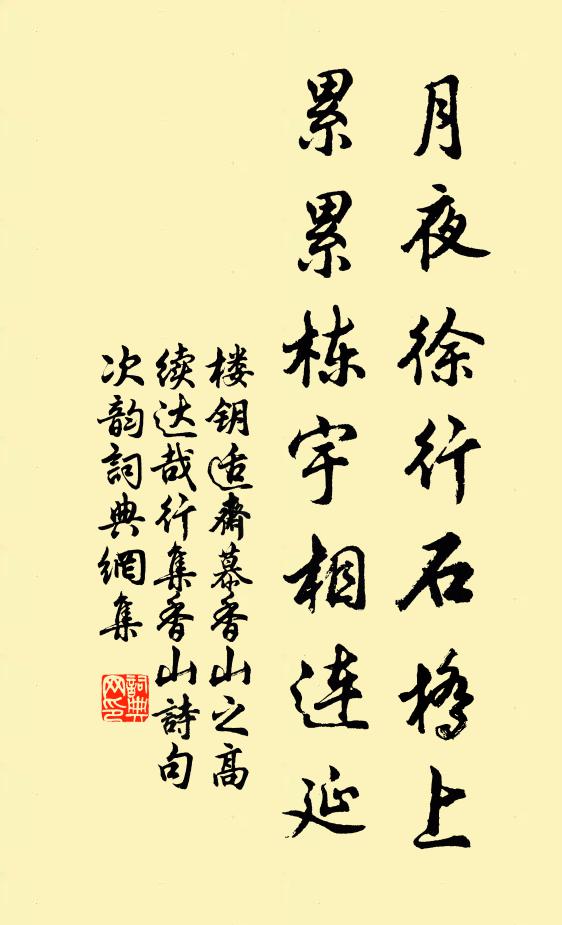 月夜徐行石橋上
累累栋宇相連延
楼钥适齋慕香山之高
续达哉行集香山詩句
次韵詞典網集
詞典
网印